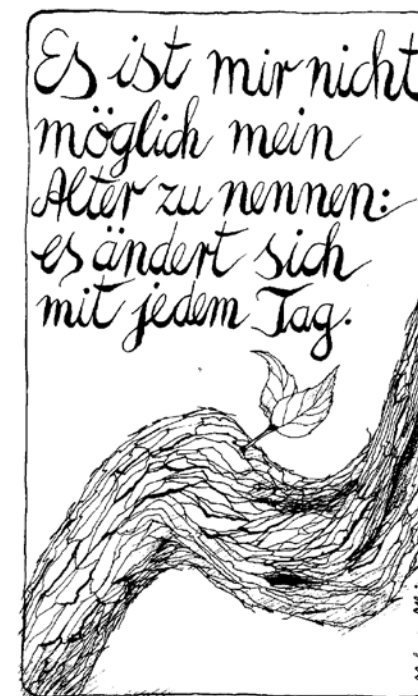 Es ist mir nicht
möglich mein
Alter zu nennen:
es ändert sich
mit jedem Tag.